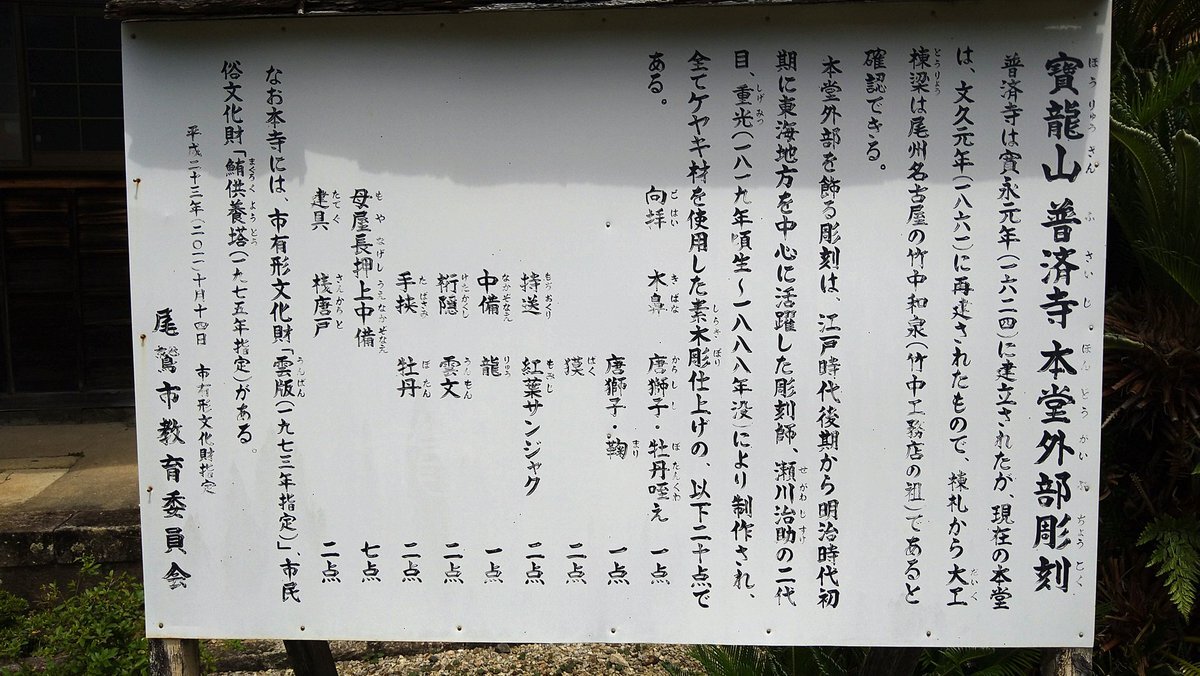 寳龍山 普済寺 本堂外部彫刻
普済寺は寛永元年(一六二四)に建立されたが、現在の本堂
は、文久元年(一八六一)に再建されたもので、棟札から大工
棟梁は尾州名古屋の竹中和泉(竹中工務店の祖)であると
確認できる。
本堂外部を飾る彫刻は、江戸時代後期から明治時代初
期に東海地方を中心に活躍した彫刻師、瀬川治助の二代
目、重光(一八一九年頃生~一八八八年没)により制作され、
全てケヤキ材を使用した素木彫仕上げの、以下二十点で
ある。
向拝 木鼻 唐獅子・牡丹咥え 一点
唐獅子・鞠 一点
獏 二点
持送 紅葉サンジャク 二点
中備 龍 一点
桁隠 雲文 二点
手挟 牡丹 二点
母屋長押上中備 七点
建具 桟唐戸 二点
なお本寺には、市有形文化財「雲版(一九七三年指定)」、市民
俗文化財「鮪供養塔(一九七五年指定)がある。
平成二十三年(二〇一一)十月十四日 市有形文化財指定
尾鷲市教育委員会